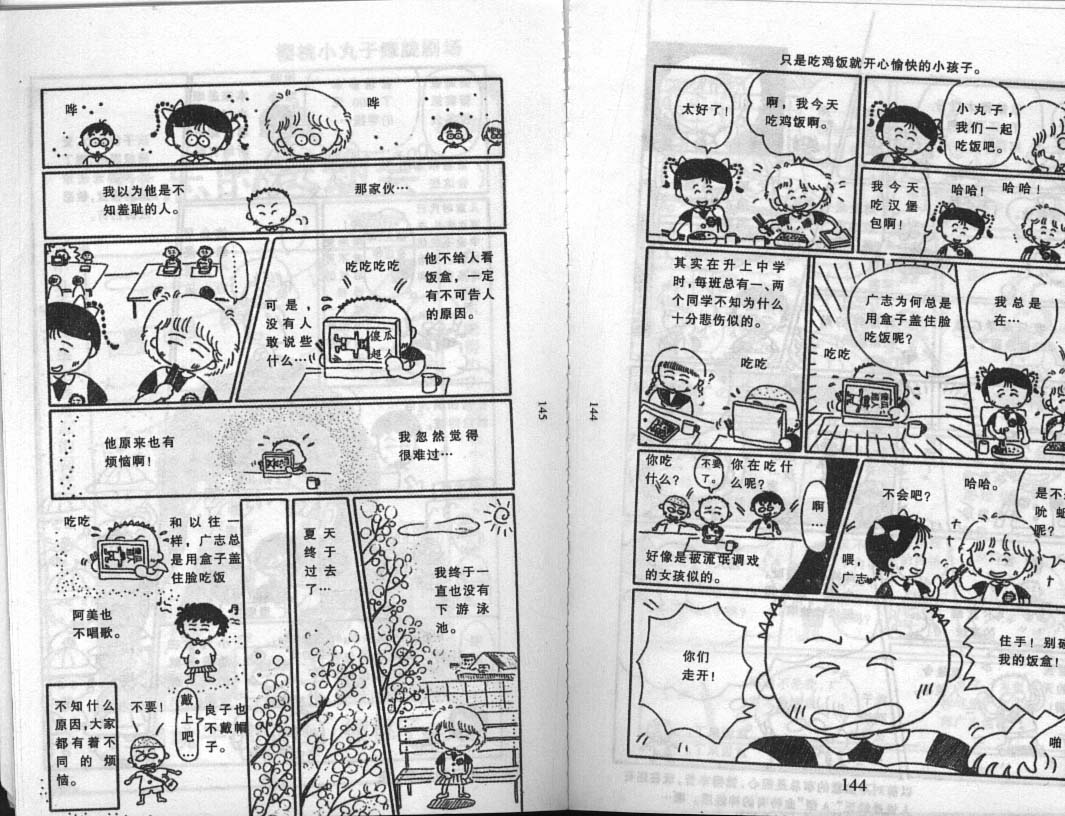 只是吃鸡饭就开心愉快的小孩子。
小丸子，
我们一起
吃饭吧。
啊，我今天
吃鸡饭啊。
太好了！
哈哈！
哈哈！
我今天
吃汉堡
包啊！
我总是
在…
广志为何总是
用盒子盖住脸
吃饭呢？
吃吃
其实在升上中学
时，每班总有一、两
个同学不知为什么
十分悲伤似的。
吃吃
？
是不
吮
呢？
哈哈。
不会吧？
喂，
广志
啊
…
你在吃什
么呢？
不要
了。
你吃
什么？
好像是被流氓调戏
的女孩似的。
住手！别
我的饭盒！
啪
你们
走开！
144
144
哗
哗
那家伙…
我以为他是不
知羞耻的人。
他不给人看
饭盒，一定
有不可告人
的原因。
吃吃吃吃
傻瓜
超人
可是，
没有人
敢说些
什么…
………
我忽然觉得
很难过…
他原来也有
烦恼啊！
我终于一
直也没有
下游泳
池。
夏天
终于
过去
了…
和以往一
样，广志总
是用盒子盖
住脸吃饭
吃吃
阿美也
不唱歌。
良子也
不戴帽
子。
戴
上
吧
…
不要！
不知什么
原因，大家
都有着不
同的烦
恼。
145